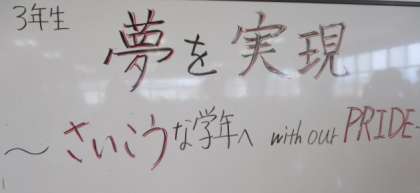 3年生
夢を実現
～さいこうな学年へ with our PRIDE-